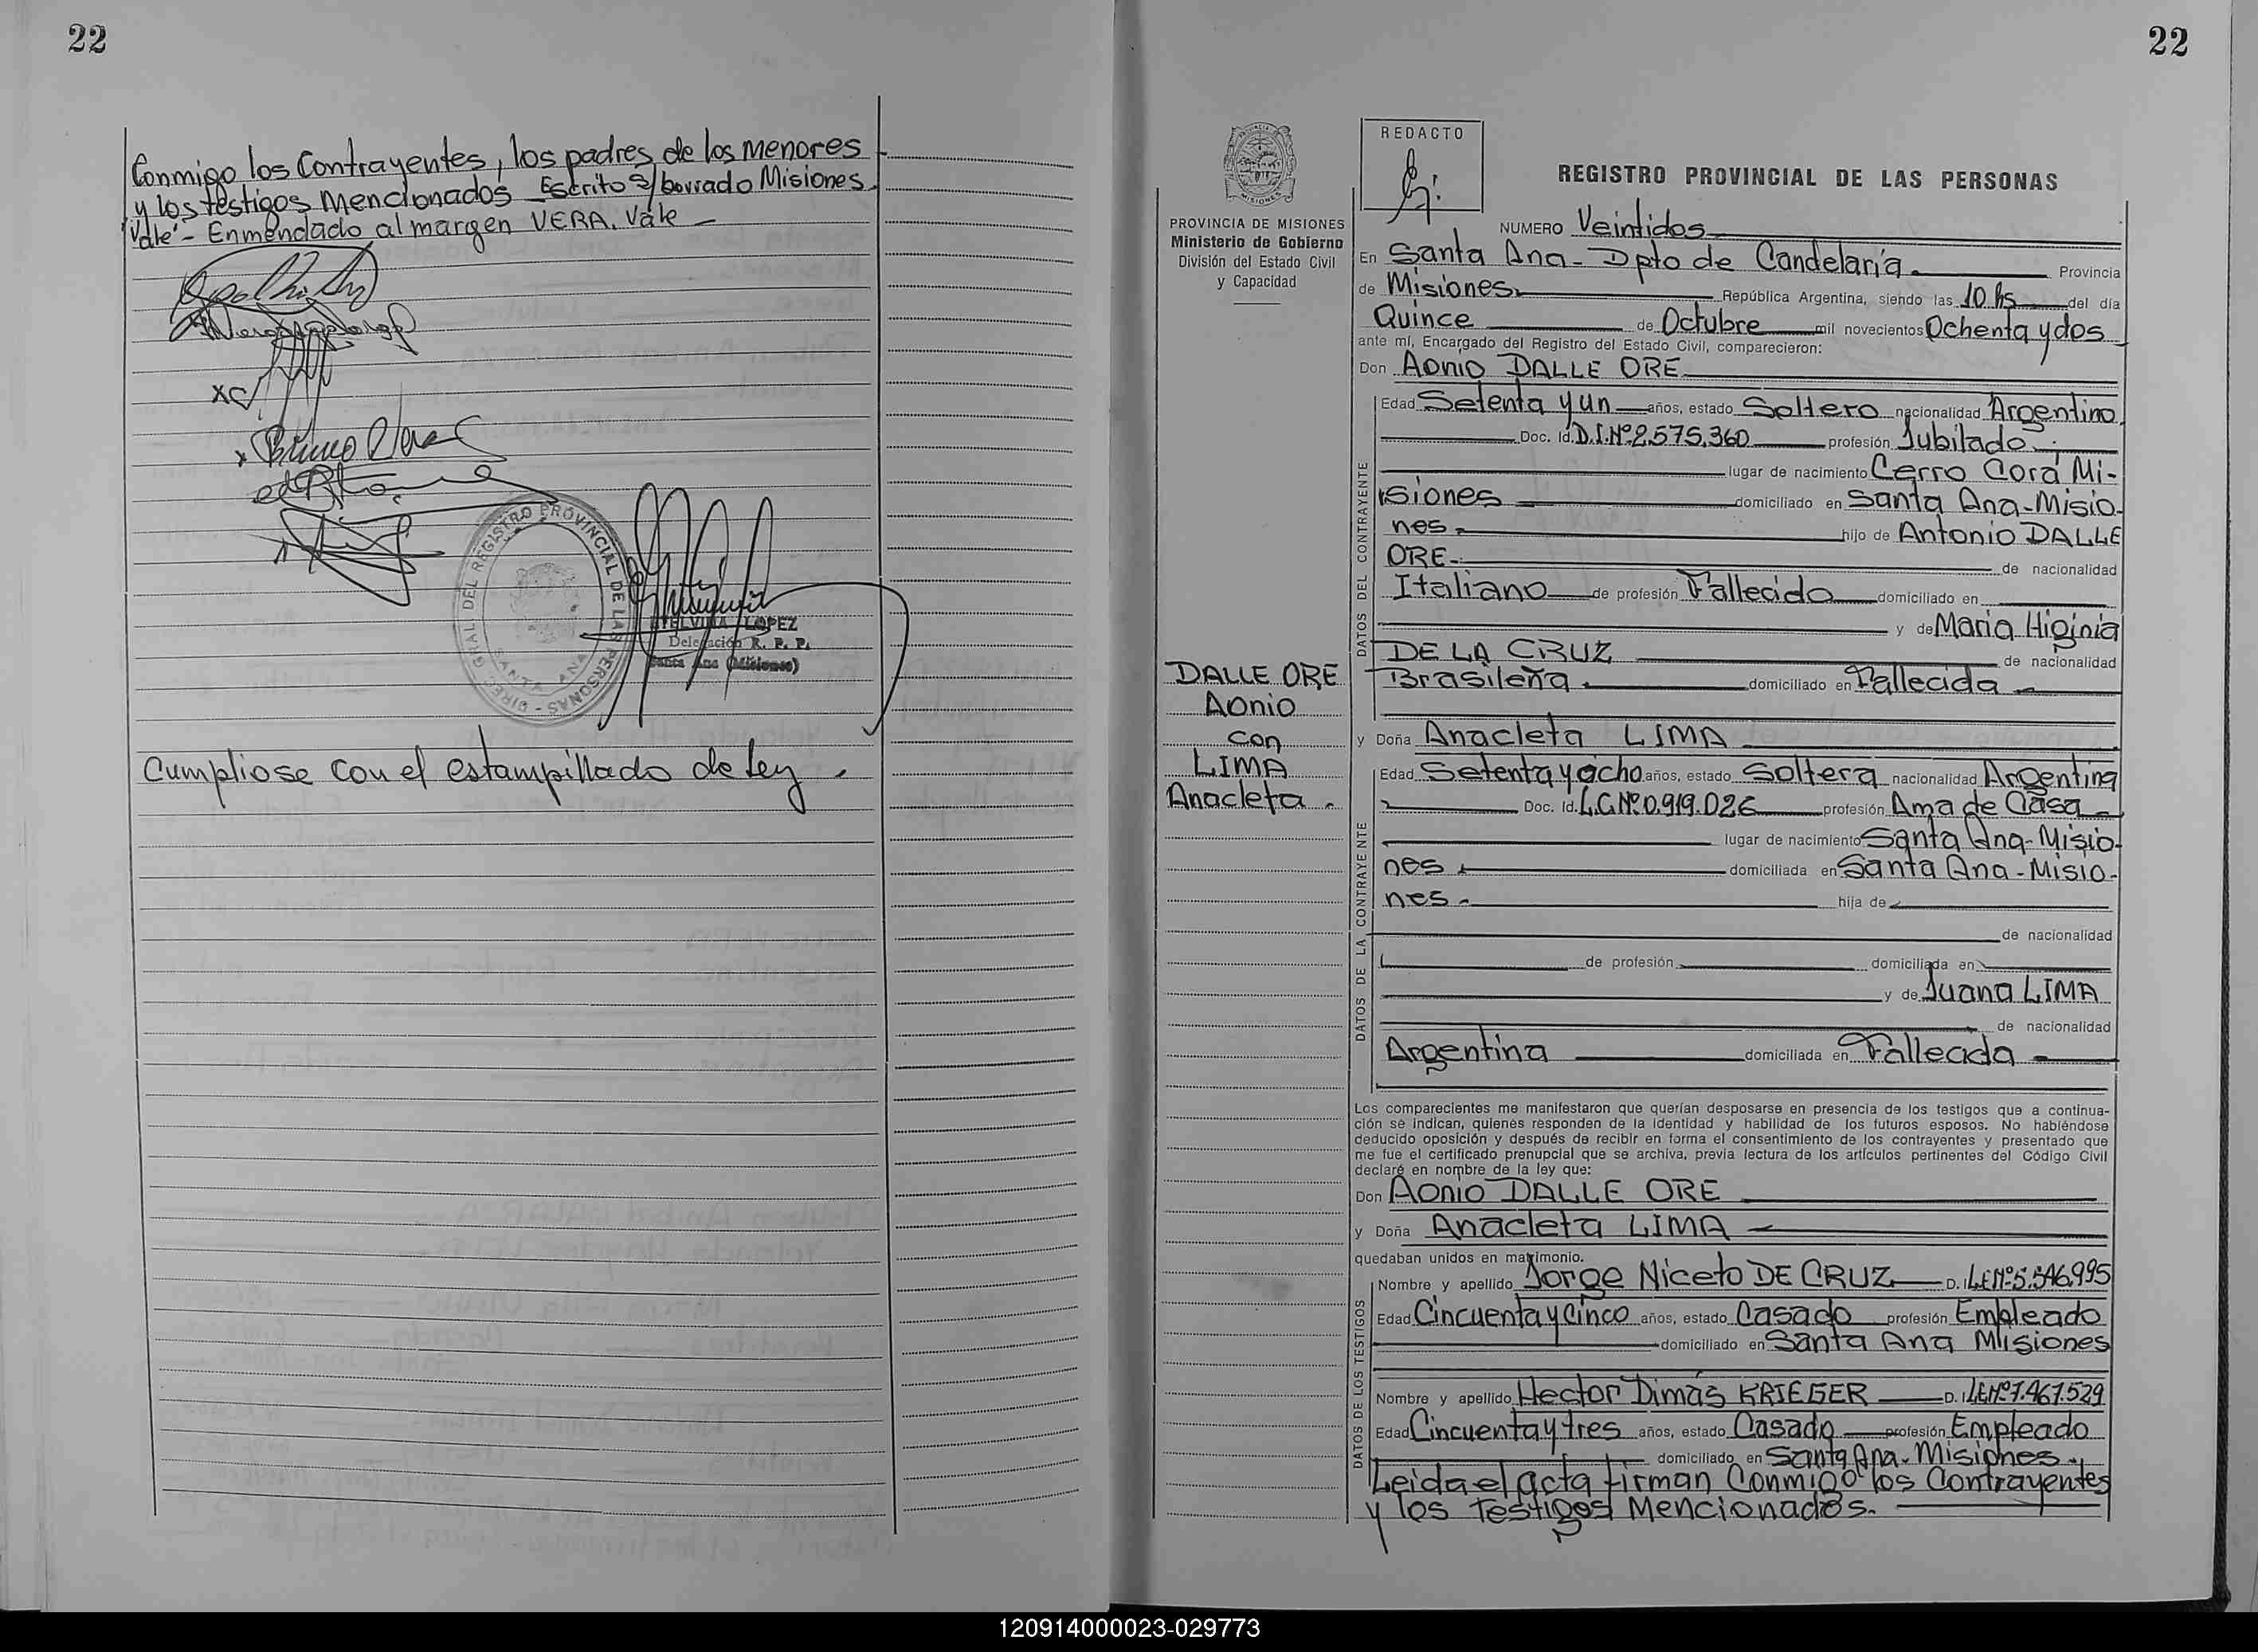 22
Conmigo los Contrayentes, los padres de los Menores
y los testigos Mencionados Escrito s/borrado Misiones
Vale - Enmendado al margen VERA. Vale
DIREC. GRAL DEL REGISTRO PROVINCIAL DE LAS PERSONAS -
SANTA ANA
ETELVINA LOPEZ
Delegación R. P. P.
Santa Ana (Misiones)
Cumpliose con el estampillado de Ley.
22
PROVINCIA DE MISIONES
Ministerio de Gobierno
División del Estado Civil
y Capacidad
REDACTO
REGISTRO PROVINCIAL DE LAS PERSONAS
NUMERO Veintidos
En Santa Ana - Dpto de Candelaria Provincia
de Misiones República Argentina, siendo las 10 hs del día
Quince de Octubre mil novecientos Ochenta y dos
ante mí, Encargado del Registro del Estado Civil, comparecieron:
Don Aonio DALLE ORE
DATOS DEL CONTRAYENTE
Edad Setenta y un años, estado Soltero nacionalidad Argentino
Doc. Id. D.I. Nº 2.575.360 profesión Jubilado
lugar de nacimiento Cerro Corá Mi-
siones domiciliado en Santa Ana-Misio-
nes hijo de Antonio DALLE
ORE de nacionalidad
Italiano de profesión Fallecido domiciliado en
y de Maria Higinia
DE LA CRUZ de nacionalidad
Brasileña domiciliado en Fallecida
DALLE ORE
Aonio
con
LIMA
Anacleta
y Doña Anacleta LIMA
DATOS DE LA CONTRAYENTE
Edad Setenta y ocho años, estado Soltera nacionalidad Argentina
Doc. Id. L.C. Nº 0.919.026 profesión Ama de Casa
lugar de nacimiento Santa Ana-Misio-
nes domiciliada en Santa Ana-Misio-
nes hija de
de nacionalidad
de profesión domiciliada en
y de Juana LIMA
de nacionalidad
Argentina domiciliada en Fallecida
Los comparecientes me manifestaron que querían desposarse en presencia de los testigos que a continua-
ción se indican, quienes responden de la identidad y habilidad de los futuros esposos. No habiéndose
deducido oposición y después de recibir en forma el consentimiento de los contrayentes y presentado que
me fue el certificado prenupcial que se archiva, previa lectura de los artículos pertinentes del Código Civil
declaré en nombre de la ley que:
Don Aonio DALLE ORE
y Doña Anacleta LIMA
quedaban unidos en matrimonio.
DATOS DE LOS TESTIGOS
Nombre y apellido Jorge Niceto DE CRUZ D. I. L.E. Nº 5.546.995
Edad Cincuenta y Cinco años, estado Casado profesión Empleado
domiciliado en Santa Ana Misiones
Nombre y apellido Hector Dimas KRIEGER D. I. L.E. Nº 7.467.529
Edad Cincuenta y tres años, estado Casado profesión Empleado
domiciliado en Santa Ana-Misiones
Leida el acta firman Conmigo los Contrayentes
y los Testigos Mencionados.
120914000023-029773